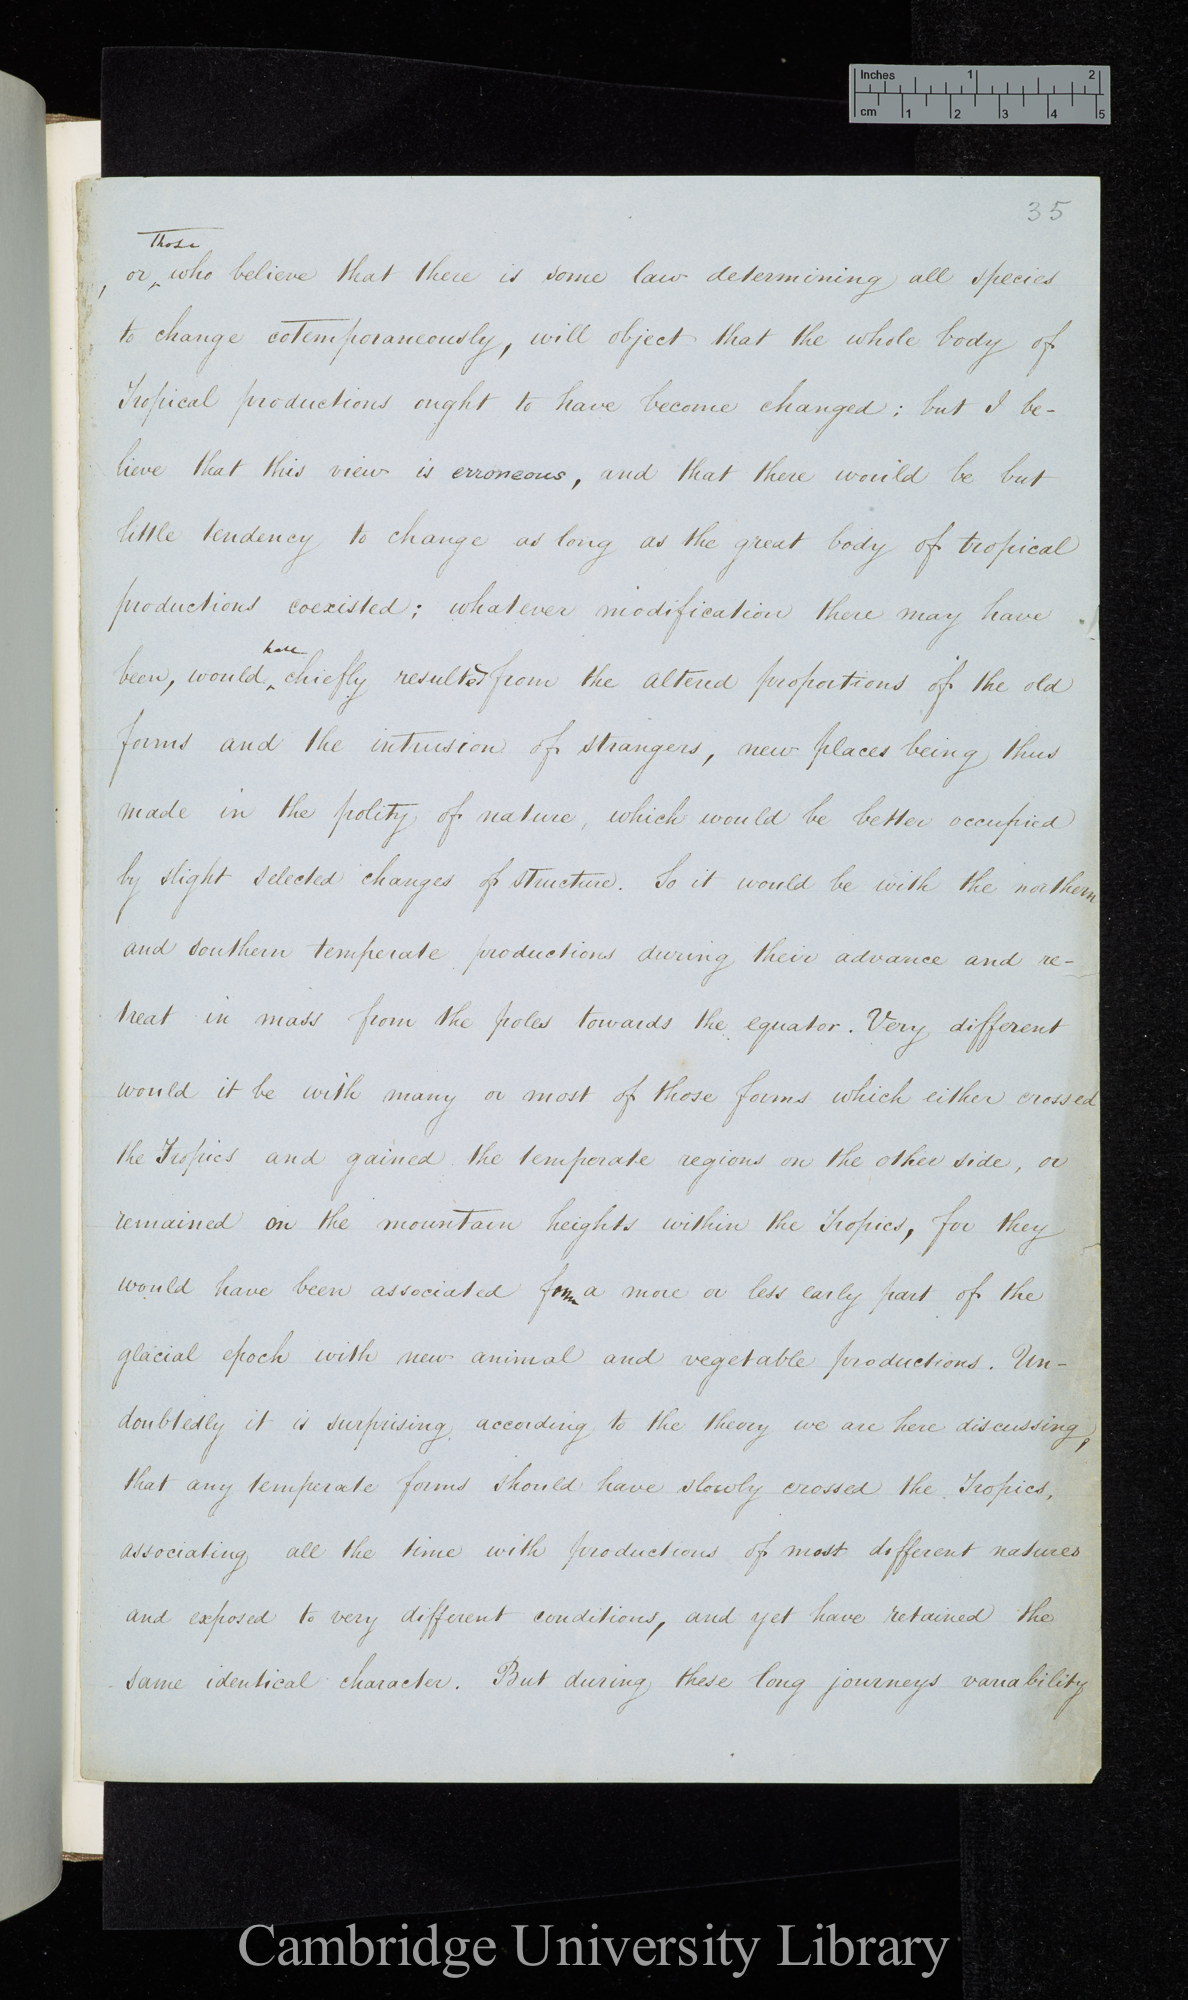 Inches 1 2
cm 1 2 3 4 5
35
Those
, or ‸ who believe that there is some law determining all species
to change cotemporaneously, will object that the whole body of
Tropical productions ought to have become changed; but I be-
lieve that this view is erroneous, and that there would be but
little tendency to change as long as the great body of tropical
productions coexisted; whatever modification there may have
have
been, would ‸ chiefly resulted from the altered proportions of the old
forms and the intrusion of strangers, new places being thus
made in the polity of nature, which would be better occupied
by slight selected changes of structure. So it would be with the northern
and southern temperate productions during their advance and re-
treat in mass from the poles towards the equator. Very different
would it be with many or most of those forms which either crossed
the Tropics and gained the temperate regions on the other side, or
remained on the mountain heights within the Tropics, for they
would have been associated from a more or less early part of the
glacial epoch with new animal and vegetable productions. Un-
doubtedly it is surprising according to the theory we are here discussing,
that any temperate forms should have slowly crossed the Tropics,
associating all the time with productions of most different natures
and exposed to very different conditions, and yet have retained the
same identical character. But during these long journeys variability
Cambridge University Library